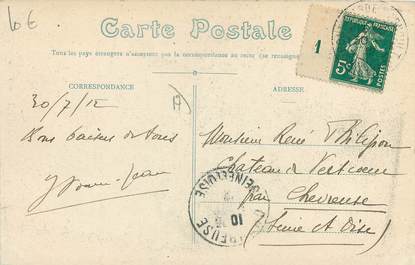 10 €
Carte Postale
Tous les pays étrangers n'acceptent pas la correspondance au recto (se renseigner
CORRESPONDANCE
ADRESSE
1
RÉPUBLIQUE FRANÇAISE
5c
POSTES
30/7/12
Bons baisers de tous
Monsieur René Philipon
Chateau de Vertcoeur
par Chevreuse
(Seine et Oise)
CHEVREUSE
SEINE ET OISE
10